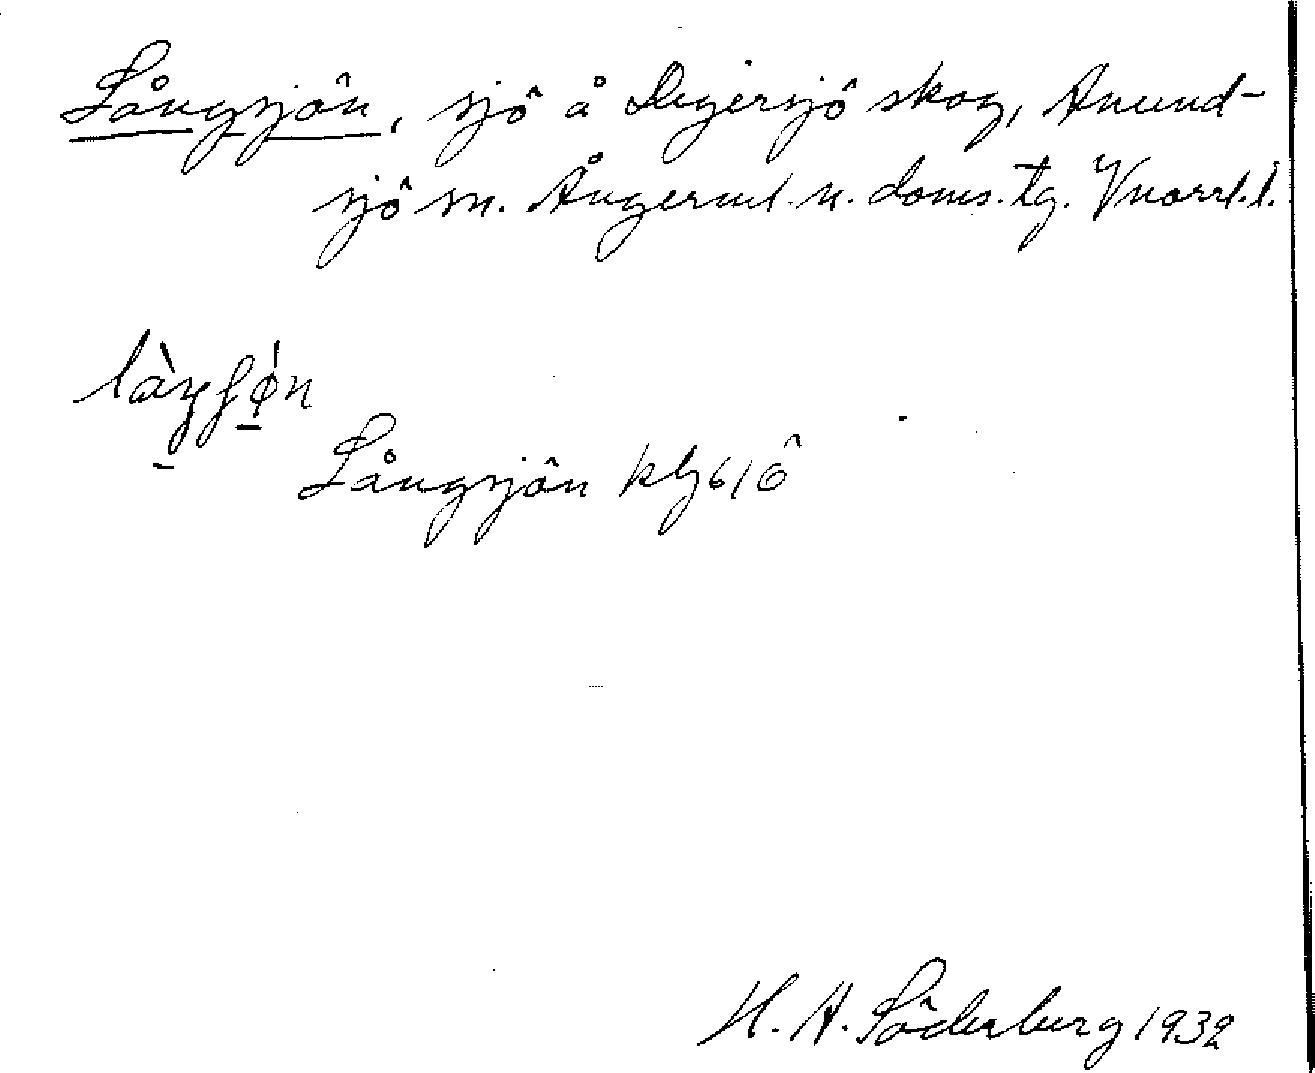 Långsjön, sjö å Degersjö skog, Anund-
sjö sn. Ångerml. n. doms. tg. Vnorrl. l.
Långsjön
H. A. Söderberg 1932